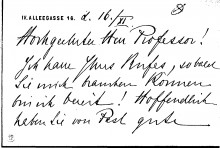 IV. ALLEEGASSE 16. d. 16./XI.
Hochgeehrter Herr Professor!
Ich harre Ihres Rufes, sobald
Sie mich brauchen können
bin ich bereit! Hoffentlich
haben Sie von Pest gute